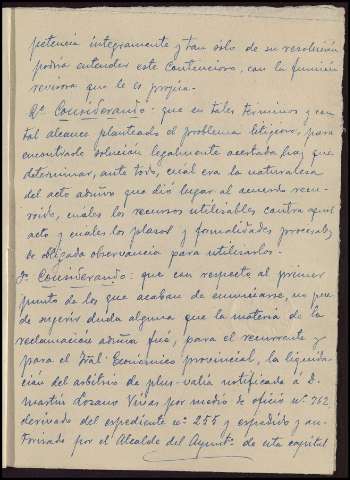 petencia íntegramente y tan sólo de su resolución
podría entender este Contencioso, con la función
revisora que le es propia.
2º Considerando: que en tales términos y con
tal alcance planteado el problema litigioso, para
encontrarle solución legalmente acertada hay que
determinar, ante todo, cuál era la naturaleza
del acto admvo que dió lugar al acuerdo recu-
rrido, cuáles los recursos utilizables contra aquel
acto y cuales los plazos y formalidades procesales
de obligada observancia para utilizarlos.-
3º Considerando: que con respecto al primer
punto de los que acaban de enunciarse, no pue-
de sugerir duda alguna que la materia de la
reclamación admva fué, para el recurrente y
para el Tral. Económico provincial, la liquida-
ción del arbitrio de plus-valía notificada á D.
Martín Lozano Vivas por medio de oficio nº 762
derivado del expediente nº 255 y expedido y au-
torizado por el Alcalde del Ayuntº de esta capital